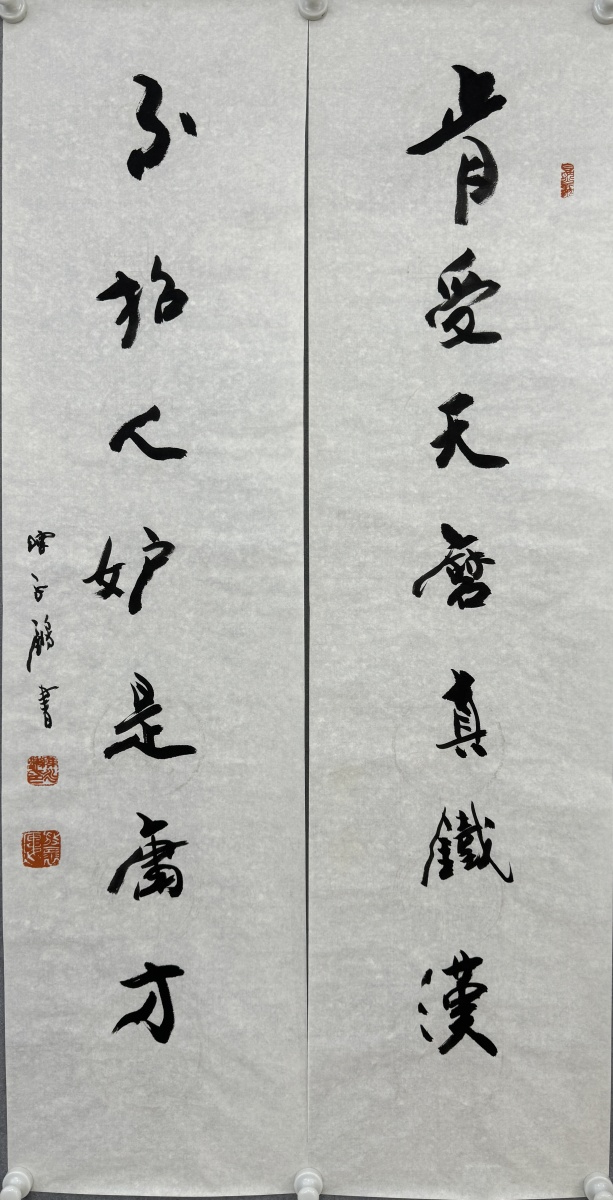 肯受天磨真鐵漢
不招人妒是庸才
書